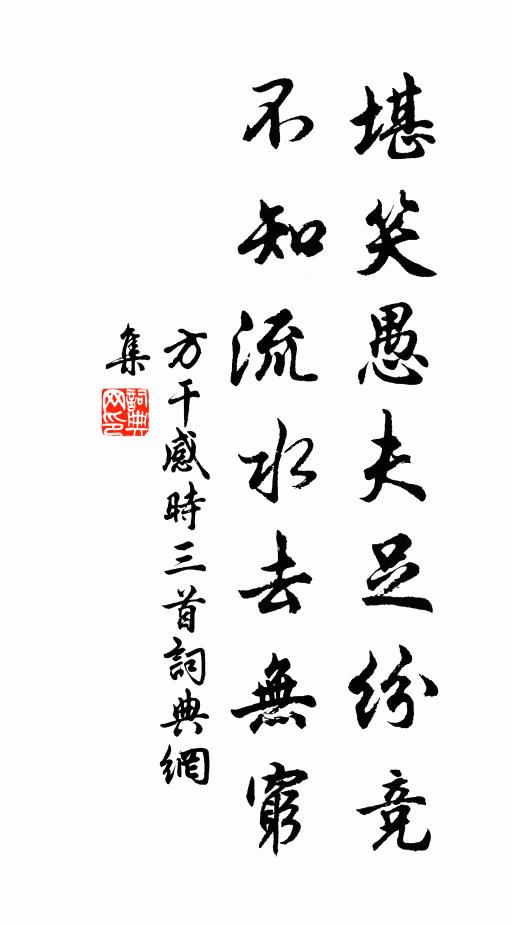 堪笑愚夫足紛竞
不知流水去無窮
方干感時三首詞典網
集
詞典网印